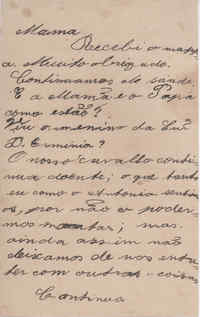 Mama
Recebi o mass
a. Muito obrigado.
Continuamos de saude.
E a Mamã e o Papá
como estão?
Viu o menino da Snrª
D. Erminia?
O nosso cavalho conti
nua doente; o que tanto
eu como o Antonio senti
os, por não o poder
mos montar; mas
ainda assim não
deixamos de nos entre
ter com outras coisas
Continua